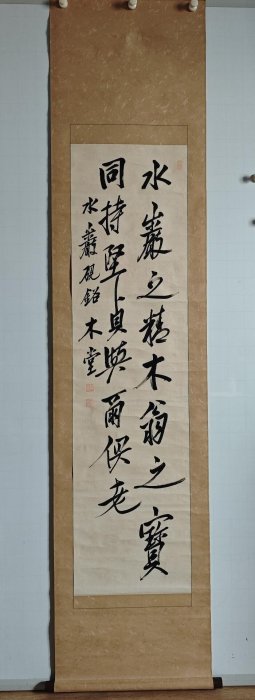 水巖之精木翁之寶
同持堅貞與爾俱老
水巖硯銘 木堂